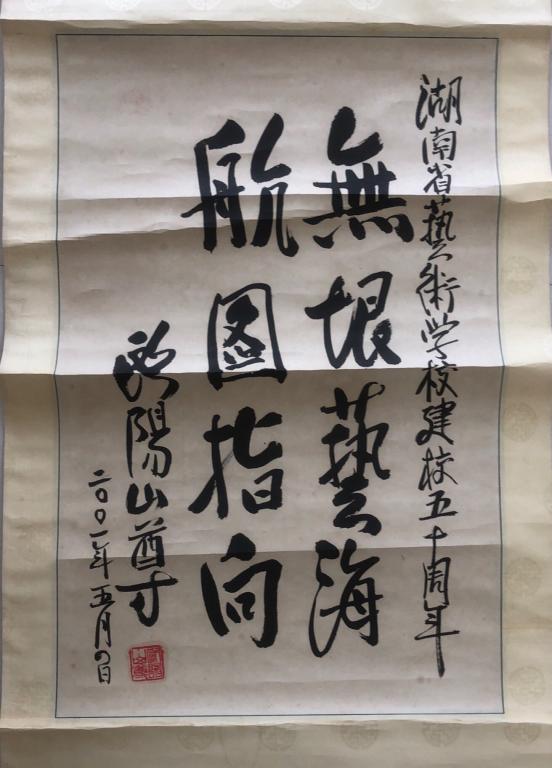 湖南省藝術学校建校五十周年
無垠藝海
航图指向
欧陽山尊
二〇〇一年五月四日